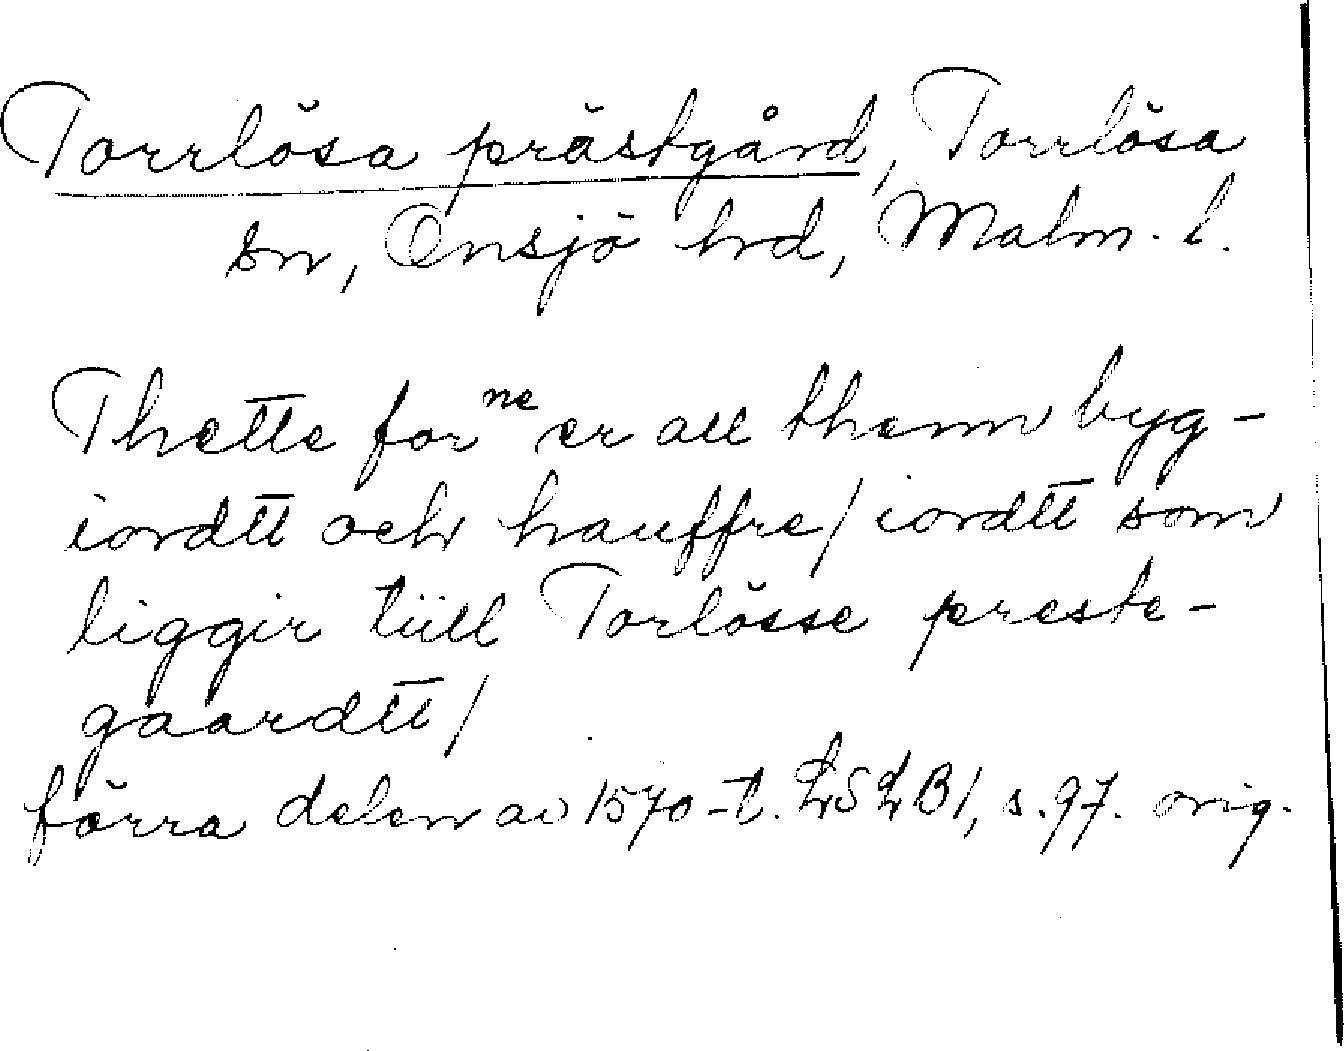 Torrlösa prästgård, Torrlösa
sn, Onsjö hrd, Malm. l.
Thette for ⁿᵉ er all thenn byg-
iordtt och hauffre/ iordtt som
liggir tiill Torlösse preste-
gaardtt/
förra delen av 1570-t. LSLB1, s. 97. orig.